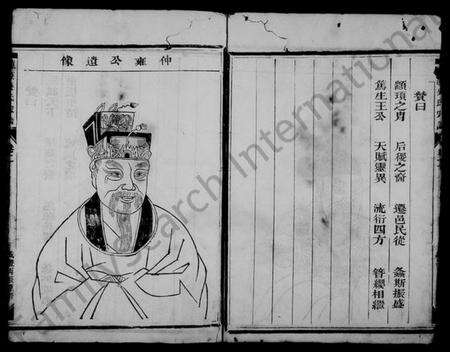 仲雍公遺像
贊曰
顓頊之胄 后稷之裔 遷邑民從 螽斯振盛
篤生王公 天賦靈異 流衍四方 簪纓相繼
FamilySearch International